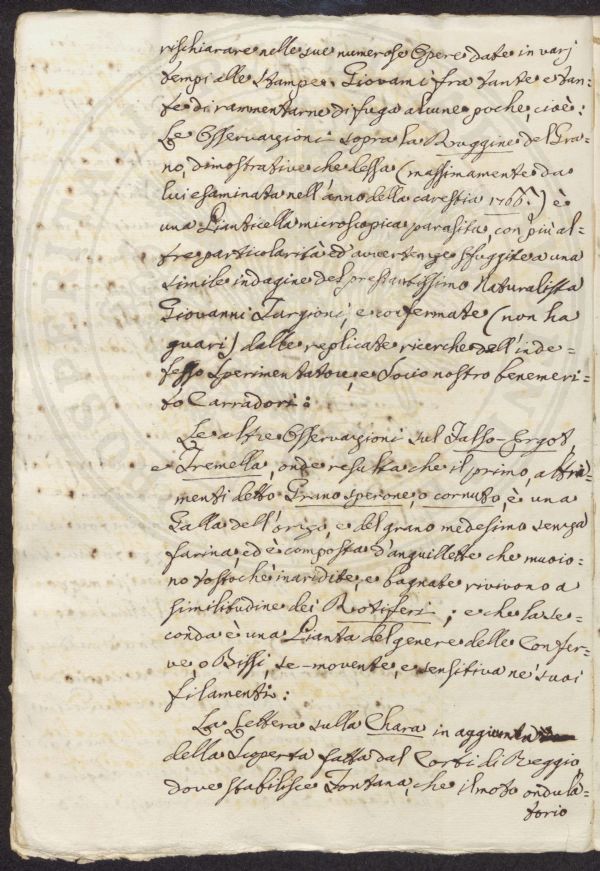 rischiarare nelle sue numerose Opere date in varj
tempi alle stampe. Giovami fra tante e tan=
te di rammentarne di fuga alcune poche, cioè:
Le Osservazioni sopra la Ruggine del Gra=
no, dimostrative che dessa (massimamente da
lui esaminata nell'anno della carestia 1766.) è
una Pianticella microscopica parasita, con più al=
tre particolarità ed avvertenze sfuggite a una
simile indagine del prestantissimo Naturalista
Giovanni Targioni, e confermate (non ha
guari) dalle replicate ricerche dell'inde=
fesso sperimentatore, e Socio nostro benemeri=
to Carradori:
Le altre Osservazioni sul Falso-Ergot,
e Tremella, onde resulta che il primo, altri=
menti detto Grano sperone, o cornuto, è una
Galla dell'orzo, e del grano medesimo senza
farina ed è composta d'anguillette che muoio=
no tostoché inaridite, e bagnate rivivono a
similitudine dei Rotiferi; e che la se=
conda è una Pianta del genere delle Confer=
ve o Bissi, se-movente, e sensitiva ne' suoi
filamenti:
La Lettera sulla Chara in aggiunta
della Scoperta fatta dal Corti di Reggio
dove stabilisce Fontana, che il moto ondula=
torio